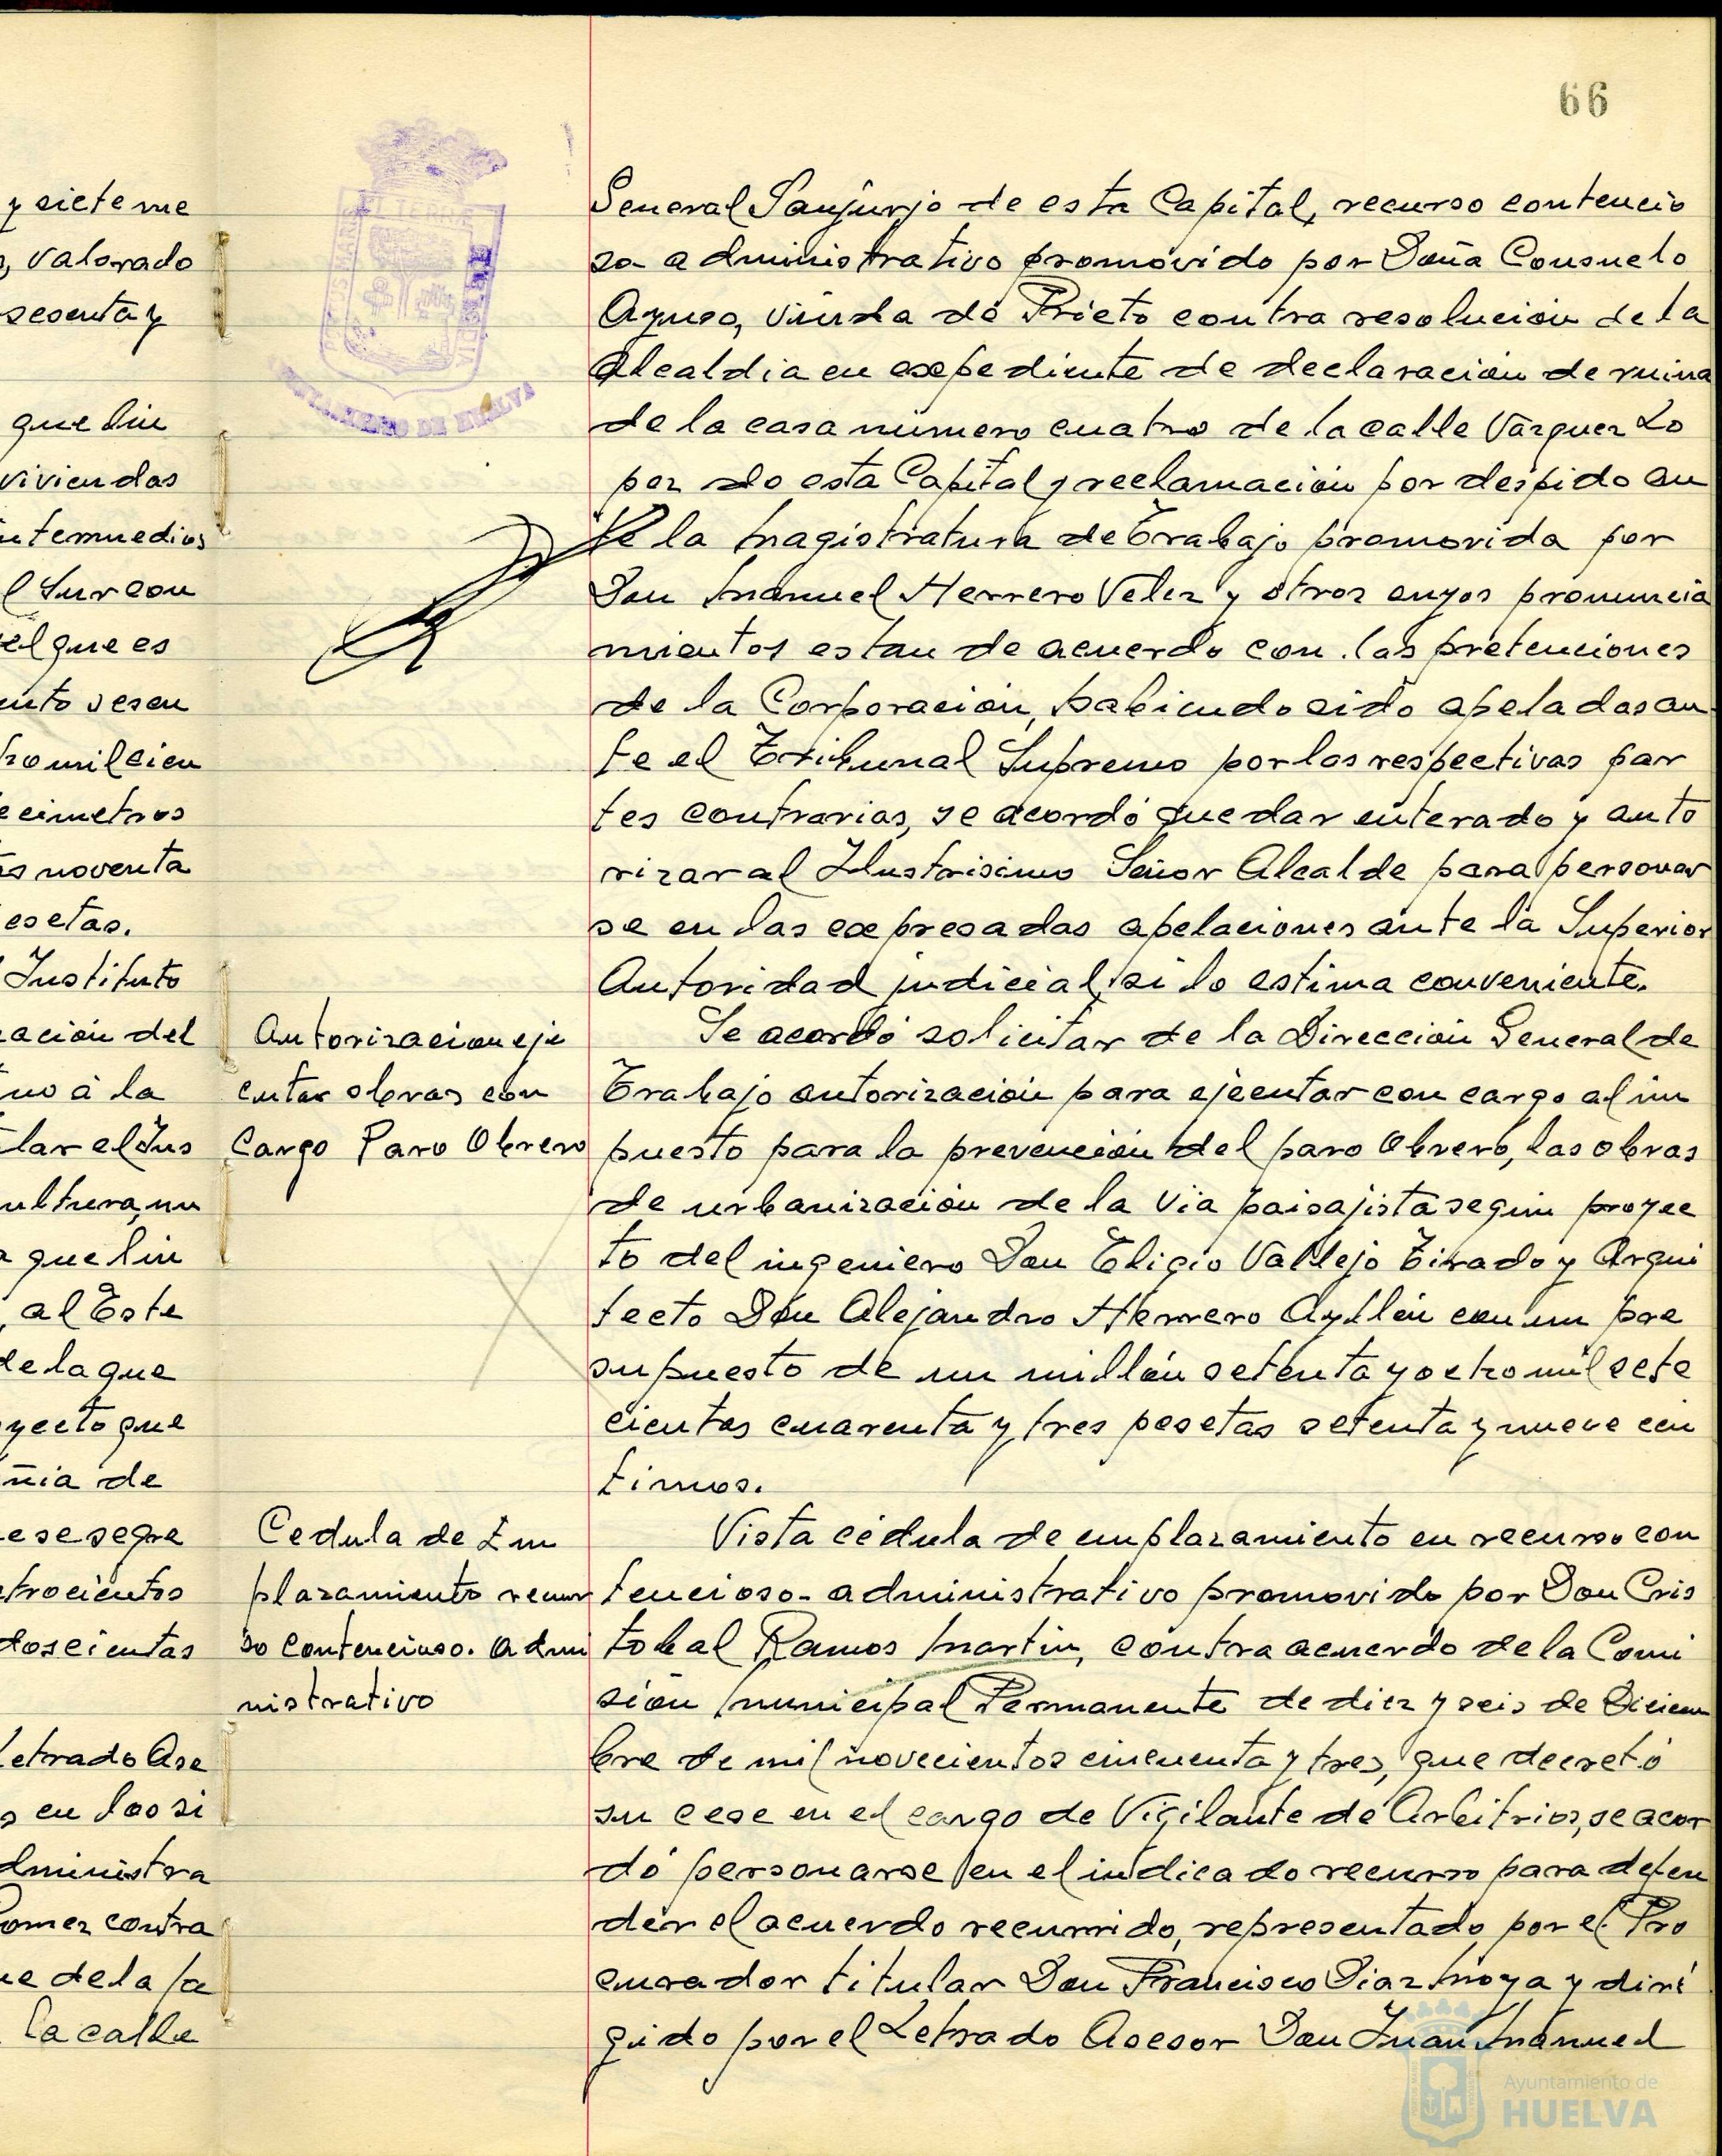 66
y siete me
valorado
sesenta y
que lin
viviendas
intermedios
l Sur con
el que es
ento seseu
ho mil cien
ecimetros
as noventa
esetas.
Instituto
ación del
no á la
lar el Ins
ultura, un
que lin
, al Este
de la que
yecto que
ñia de
ese segre
trocientos
doscientas
Letrado Ase
s en los si
dministra
Gomez contra
ue de la fa
la calle
EL TERRAE
AYUNTAMIENTO DE HUELVA
General Sanjurjo de esta Capital, recurso contencio
so-administrativo promovido por Doña Consuelo
Ayuso, viuda de Prieto contra resolución de la
Alcaldia en expediente de declaración de ruina
de la casa número cuatro de la calle Vázquez Lo
pez de esta Capital y reclamación por despido an
te la Magistratura de Trabajo promovida por
Don Manuel Herrero Velez y otros cuyos pronuncia
mientos estan de acuerdo con las pretenciones
de la Corporación, habiendo sido apeladas an
te el Tribunal Supremo por las respectivas par
tes contrarias, se acordó quedar enterado y auto
rizar al Ilustrisimo Señor Alcalde para personar
se en las expresadas apelaciones ante la Superior
Autoridad judicial, si lo estima conveniente.
Autorizacion eje
cutar obras con
Cargo Paro Obrero
Se acordó solicitar de la Dirección General de
Trabajo autorización para ejecutar con cargo al im
puesto para la prevención del paro Obrero, las obras
de urbanización de la Via paisajista según proyec
to del ingeniero Don Eligio Vallejo Tirado y Arqui
tecto Don Alejandro Herrero Ayllón con un pre
supuesto de un millón setenta y ocho mil sete
cientas cuarenta y tres pesetas setenta y nueve cén
timos.
Cedula de Em
plazamiento recur
so contencioso-admi
nistrativo
Vista cédula de emplazamiento en recurso con
tencioso-administrativo promovido por Don Cris
tobal Ramos Martin, contra acuerdo de la Comi
sión Municipal Permanente de diez y seis de Diciem
bre de mil novecientos cincuenta y tres, que decretó
su cese en el cargo de Vigilante de Arbitrios, se acor
dó personarse en el indicado recurso para defen
der el acuerdo recurrido, representado por el Pro
curador titular Don Francisco Diaz Moya y diri
gido por el Letrado Asesor Don Juan Manuel
Ayuntamiento de
HUELVA